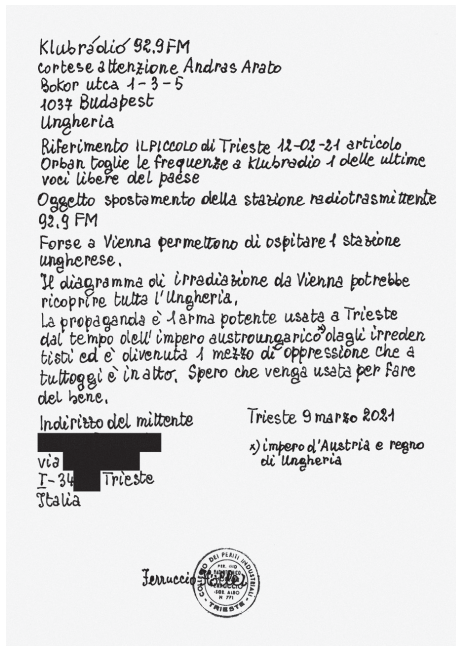 Klubrádió 92.9 FM
cortese attenzione Andras Arato
Bokor utca 1-3-5
1037 Budapest
Ungheria
Riferimento IL PICCOLO di Trieste 12-02-21 articolo
Orban toglie le frequenze a Klubradio 1 delle ultime
voci libere del paese
Oggetto spostamento della stazione radiotrasmittente
92.9 FM
Forse a Vienna permettono di ospitare 1 stazione
ungherese.
Il diagramma di irradiazione da Vienna potrebbe
ricoprire tutta l'Ungheria.
La propaganda è 1 arma potente usata a Trieste
dal tempo dell'impero austroungarico x) dagli irreden
tisti ed è divenuta 1 mezzo di oppressione che a
tuttoggi è in atto. Spero che venga usata per fare
del bene.
Indirizzo del mittente
via
I-34 Trieste
Italia
Trieste 9 marzo 2021
x) impero d'Austria e regno
di Ungheria
Ferruccio
COLLEGIO DEI PERITI INDUSTRIALI
PER. IND.
FERRUCCIO
N 771
TRIESTE